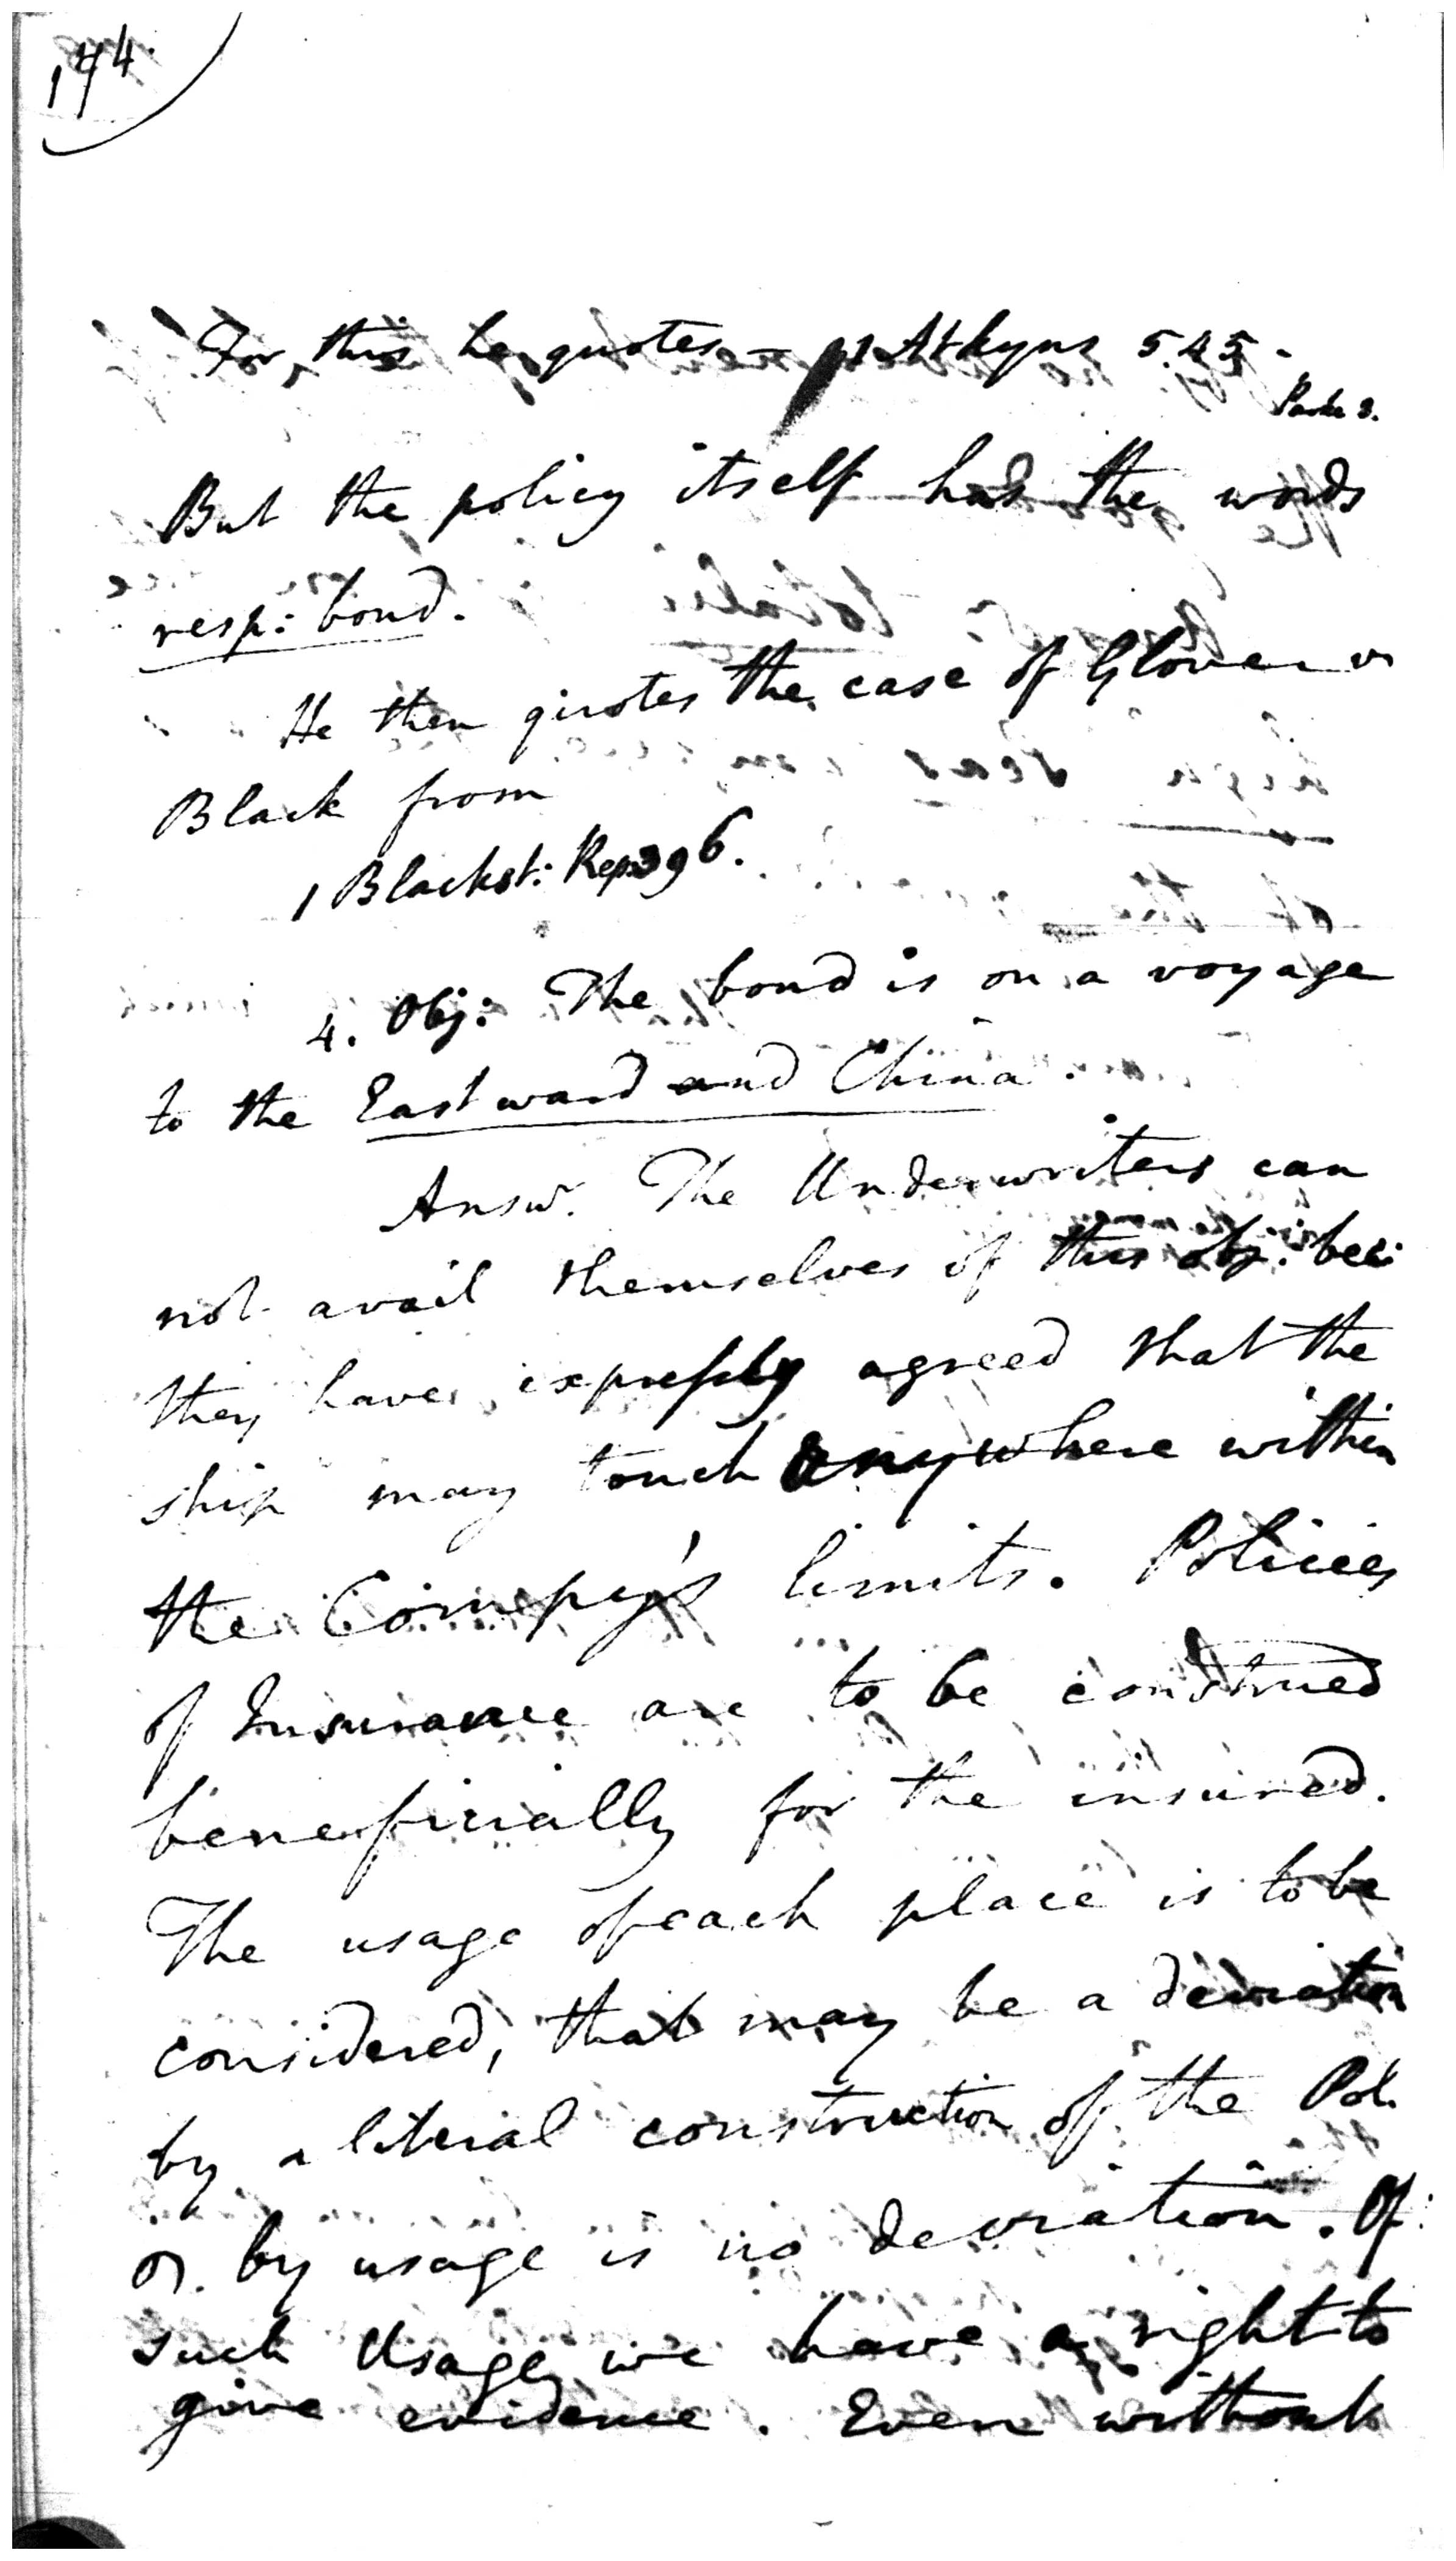 174.
For this he quotes - 1 Atkyns 545 -
Parke 2.
But the policy itself has the words
resp: bond.
He then quotes the case of Glover v
Black from
1 Blackst: Rep: 396.
4. Obj: The bond is on a voyage
to the Eastward and China.
Answr. The Underwriters can
not avail themselves of this obj: bec:
they have expressly agreed that the
ship may touch anywhere within
the Compy's limits. Policies
of Insurance are to be construed
beneficially for the insured.
The usage of each place is to be
considered, that may be a deviation
by a literal construction of the Pol.
or by usage is no deviation. Of
such Usage we have a right to
give evidence. Even without